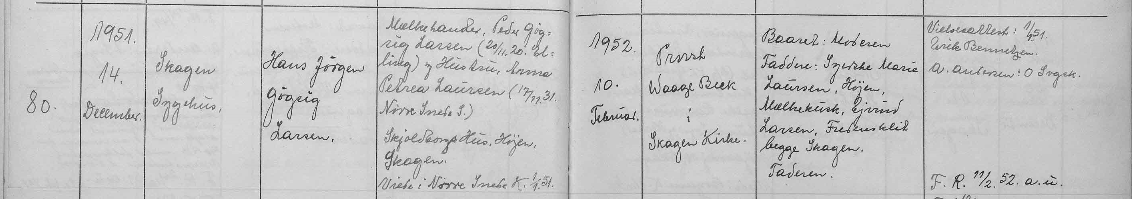 80.
1951.
14.
December.
Skagen
Sygehus,
Hans Jörgen
Gögsig
Larsen.
Mælkehandler, Peder Gög-
sig Larsen (20/11.20. El-
ling) og Hustru, Anna
Petrea Laursen (17/ .31.
Nörre Snede S.)
Skjoldborgs Hus, Höjen,
Skagen.
Viede i Nörre Snede K. 51.
1952.
10.
Februar.
Provst
Waage Beck
i
Skagen Kirke.
Baaret: Moderen
Faddere: Syerske Marie
Laursen, Höjen,
Mælkekusk, Ejvind
Larsen, Frederiksklit
begge Skagen.
Faderen.
Vielsesattest: 51.
Bennetzen.
A. Andersen: O Sogek.
F. R. 11/2. 52. a.u.